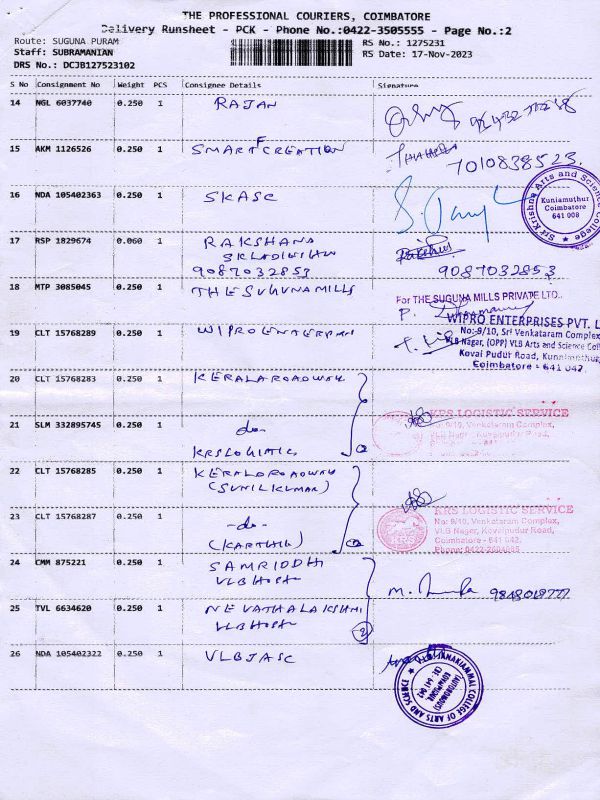 THE PROFESSIONAL COURIERS, COIMBATORE
Delivery Runsheet - PCK - Phone No.:0422-3505555 - Page No.:2
Route: SUGUNA PURAM
Staff: SUBRAMANIAN
DRS No.: DCJB127523102
RS No.: 1275231
RS Date: 17-Nov-2023
S No Consignment No Weight PCS Consignee Details Signature
14 NGL 6037740 0.250 1 RAJAN
15 AKM 1126526 0.250 1 SMARTFCREATION
7010838523
16 NDA 105402363 0.250 1 SKASC
Sri Krishna Arts and Science College
Kuniamuthur
Coimbatore
641 008
17 RSP 1829674 0.060 1 RAKSHANA
9087032853 9087032853
18 MTP 3085045 0.250 1 THE SUGUNA MILLS
For THE SUGUNA MILLS PRIVATE LTD..
WIPRO ENTERPRISES PVT. L
No:-9/10, Sri Venkataram Complex
VLB Nagar, (OPP) VLB Arts and Science Coll
Kovai Pudur Road, Kuniamuthur,
Coimbatore - 641 042.
19 CLT 15768289 0.250 1 WIPRO
20 CLT 15768283 0.250 1 KERALA ROADWAY
21 SLM 332895745 0.250 1 -do-
KRS LOGISTIC
KRS LOGISTIC SERVICE
No: 9/10, Venkataram Complex,
VLB Nagar, Kovaipudur Road,
22 CLT 15768285 0.250 1 KERALA ROADWAY
(SUNIL KUMAR)
23 CLT 15768287 0.250 1 -do-
(KARTHIK)
KRS
KRS LOGISTIC SERVICE
No: 9/10, Venkataram Complex,
VLB Nagar, Kovaipudur Road,
Coimbatore - 641 042.
Phone: 0422-2604085
24 CMM 875221 0.250 1 SAMRIDDHI
VLB HOSTL
25 TVL 6634620 0.250 1 NEVATHALAKSHMI
VLB HOSTL
2
26 NDA 105402322 0.250 1 VLBJASC
JANAKIAMMAL COLLEGE OF ARTS AND SCIENCE
(AUTONOMOUS)
KOVAIPUDUR
CBE-641 042